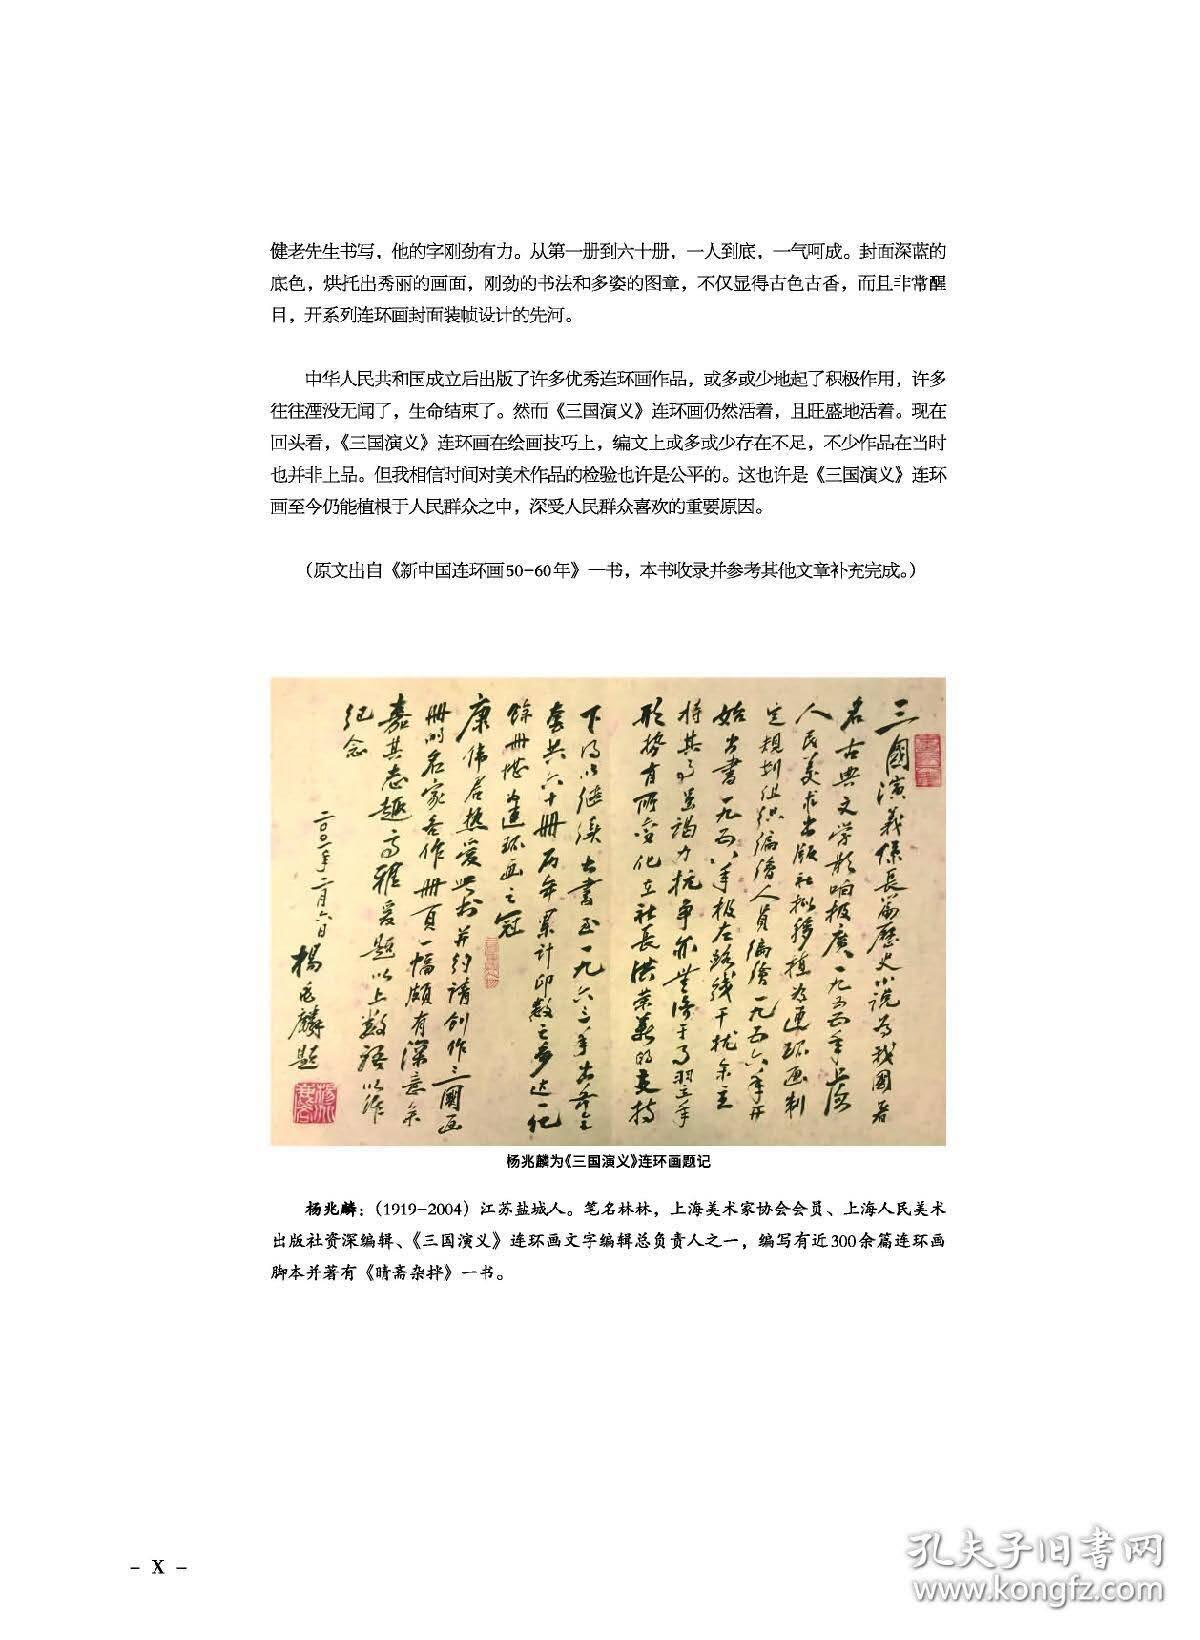 健老先生书写，他的字刚劲有力。从第一册到六十册，一人到底，一气呵成。封面深蓝的
底色，烘托出秀丽的画面，刚劲的书法和多姿的图章，不仅显得古色古香，而且非常醒
目，开系列连环画封面装帧设计的先河。
中华人民共和国成立后出版了许多优秀连环画作品，或多或少地起了积极作用，许多
往往湮没无闻了，生命结束了。然而《三国演义》连环画仍然活着，且旺盛地活着。现在
回头看，《三国演义》连环画在绘画技巧上，编文上或多或少存在不足，不少作品在当时
也并非上品。但我相信时间对美术作品的检验也许是公平的。这也许是《三国演义》连环
画至今仍能植根于人民群众之中，深受人民群众喜欢的重要原因。
（原文出自《新中国连环画50-60年》一书，本书收录并参考其他文章补充完成。）
三國演義係長篇歷史小说为我國著
名古典文学影响极广一九五五年上海
人民美术出版社拟移植为连环画制
定规划组织编绘人员编绘一九五六年开
始出书一九五八年极左路线干扰余主
持其事虽竭力抗争亦无济于事翌年
形势有所变化在社长洪荣的支持
下得以继续出书至一九六三年出齐全
套共六十册历年累计印数之多达一亿
馀册堪为连环画之冠
康伟君热爱此术并约请创作三國画
册的名家各作册页一幅颇有深意余
嘉其志趣高雅爰题以上数语以作
纪念
二〇〇一年二月六日
楊兆麟题
杨兆麟为《三国演义》连环画题记
杨兆麟：（1919-2004）江苏盐城人。笔名林林，上海美术家协会会员、上海人民美术
出版社资深编辑、《三国演义》连环画文字编辑总负责人之一，编写有近300余篇连环画
脚本并著有《晴斋杂拌》一书。
- X -
孔夫子旧书网
www.kongfz.com